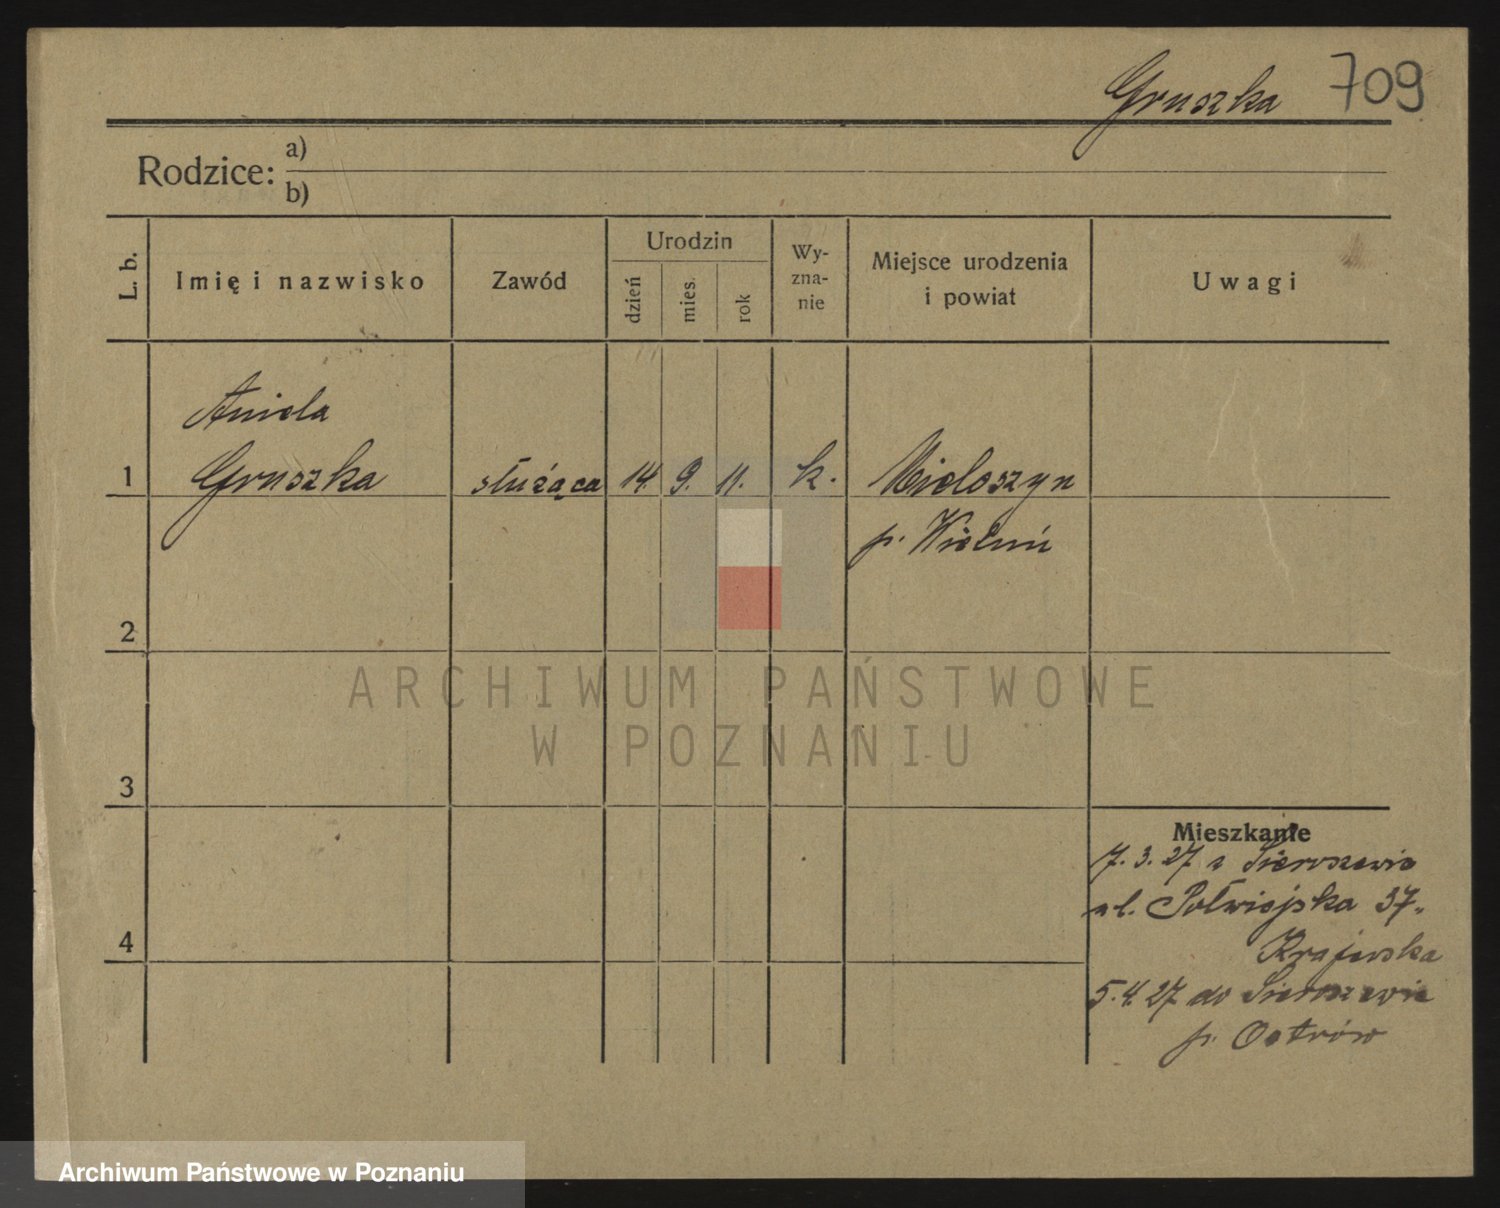 Gruszka 709
Rodzice: a)
b)
L. b.
Imię i nazwisko
Zawód
Urodzin
dzień
mies.
rok
Wy-
zna-
nie
Miejsce urodzenia
i powiat
Uwagi
Aniela
1 Gruszka służąca 14. 9. 11. k. Mieleszyn
p. Wieluń
2
ARCHIWUM PAŃSTWOWE
W POZNANIU
3
Mieszkanie
7. 3. 27 z Sieroszewic
ul. Półwiejska 37.
Krajewska
4
5. 4. 27 do Sieroszewic
p. Ostrów
Archiwum Państwowe w Poznaniu